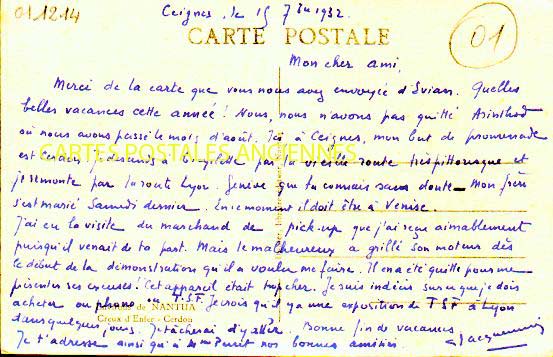 01.12.14
Ceignes, le 15 7bre 1932.
CARTE POSTALE
01
Mon cher ami,
Merci de la carte que vous nous avez envoyée d'Evian. Quelles
belles vacances cette année! Nous, nous n'avons pas quitté
où nous avons passé le mois d'août. Ici à Ceignes, mon but de promenade
est Cerdon. Je descends à bicyclette par la vieille route très pittoresque et
CARTES POSTALES ANCIENNES
je remonte par la route Lyon-Genève que tu connais sans doute - Mon frère
s'est marié Samedi dernier. En ce moment il doit être à Venise.
J'ai eu la visite du marchand de pick-up que j'ai reçu aimablement
puisqu'il venait de ta part. Mais le malheureux a grillé son moteur dès
le début de la démonstration qu'il a voulu me faire. Il en a été quitte pour me
présenter ses excuses! Cet appareil était trop cher. Je suis indécis sur ce que je dois
acheter ou phono ou T.S.F. Je crois qu'il y a une exposition de T.S.F. à Lyon
de NANTUA
Creux d'Enfer - Cerdon
dans quelques jours. Je tâcherai d'y aller. Bonne fin de vacances
Je t'adresse ainsi qu'à Mme nos bonnes amitiés.